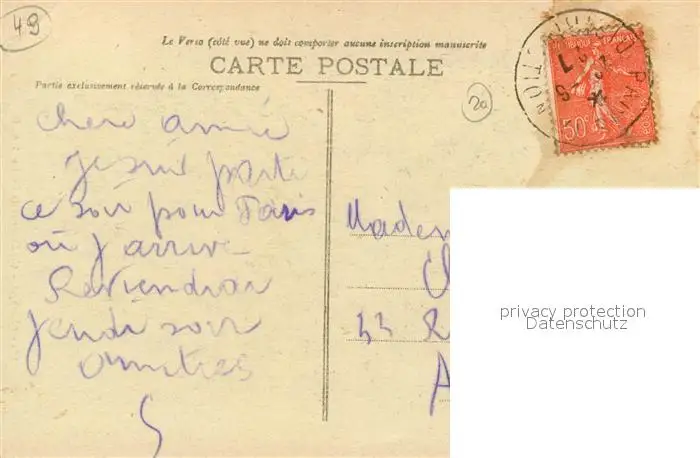 49
Le Verso (côté vue) ne doit comporter aucune inscription manuscrite
CARTE POSTALE
Partie exclusivement réservée à la Correspondance
20
REPUBLIQUE FRANÇAISE
50c
chere amie
Je suis parti
ce soir pour Paris
où J'arrive
Reviendrai
Jeudi soir
Amitiés
S
Madem
33 R
A
privacy protection
Datenschutz